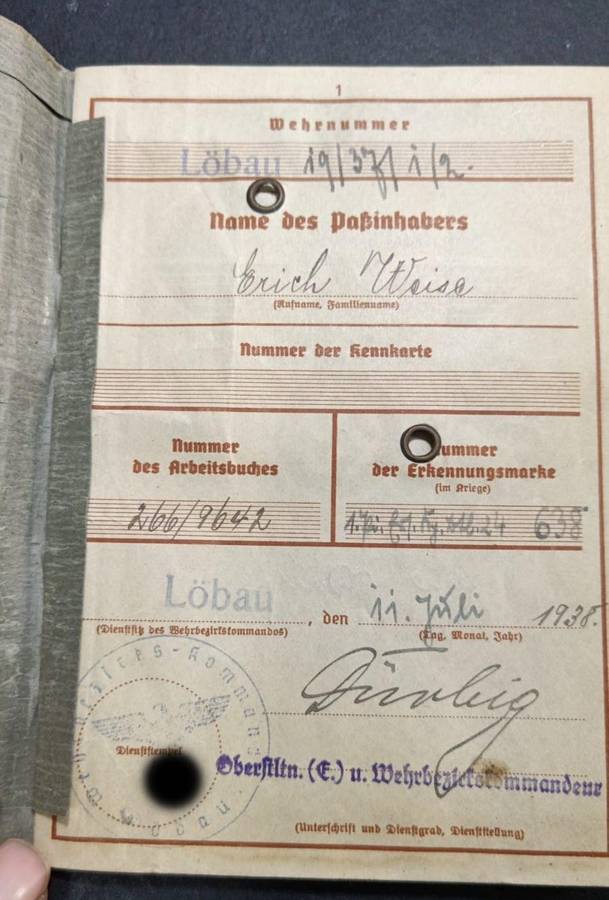 1
Wehrnummer
Löbau 19/37/1/2.
Name des Paßinhabers
Erich Weise
(Rufname, Familienname)
Nummer der Kennkarte
Nummer
des Arbeitsbuches
266/9642
Nummer
der Erkennungsmarke
(im Kriege)
638
Löbau, den 11. Juli 1938.
(Dienstsitz des Wehrbezirkskommandos) (Tag, Monat, Jahr)
Dienststempel
Oberstltn. (E.) u. Wehrbezirkskommandeur
(Unterschrift und Dienstgrad, Dienststellung)